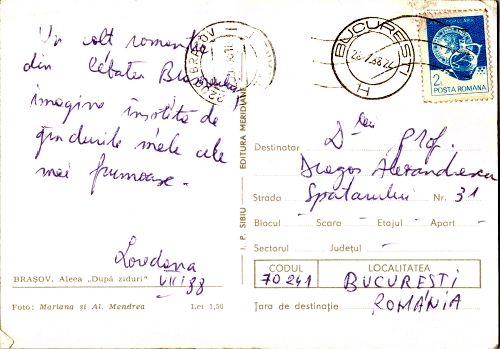 Un colt romantic
din Cetatea Brasovului
imagine insotita de
gindurile mele cele
mai frumoase.
Loredana
VII 88
BRAȘOV. Aleea „După ziduri"
Foto: Mariana și Al. Mendrea
Lei 1,50
I. P. SIBIU - EDITURA MERIDIANE
BRAȘOV
BUCURESTI
H
POSTA ROMANA
2L
D-lui Prof.
Destinatar Dragos Alexandrescu
Strada Spatarului Nr. 31
Blocul - Scara - Etajul - Apart -
Sectorul - Județul -
CODUL LOCALITATEA
70241 BUCUREȘTI
Țara de destinație ROMÂNIA